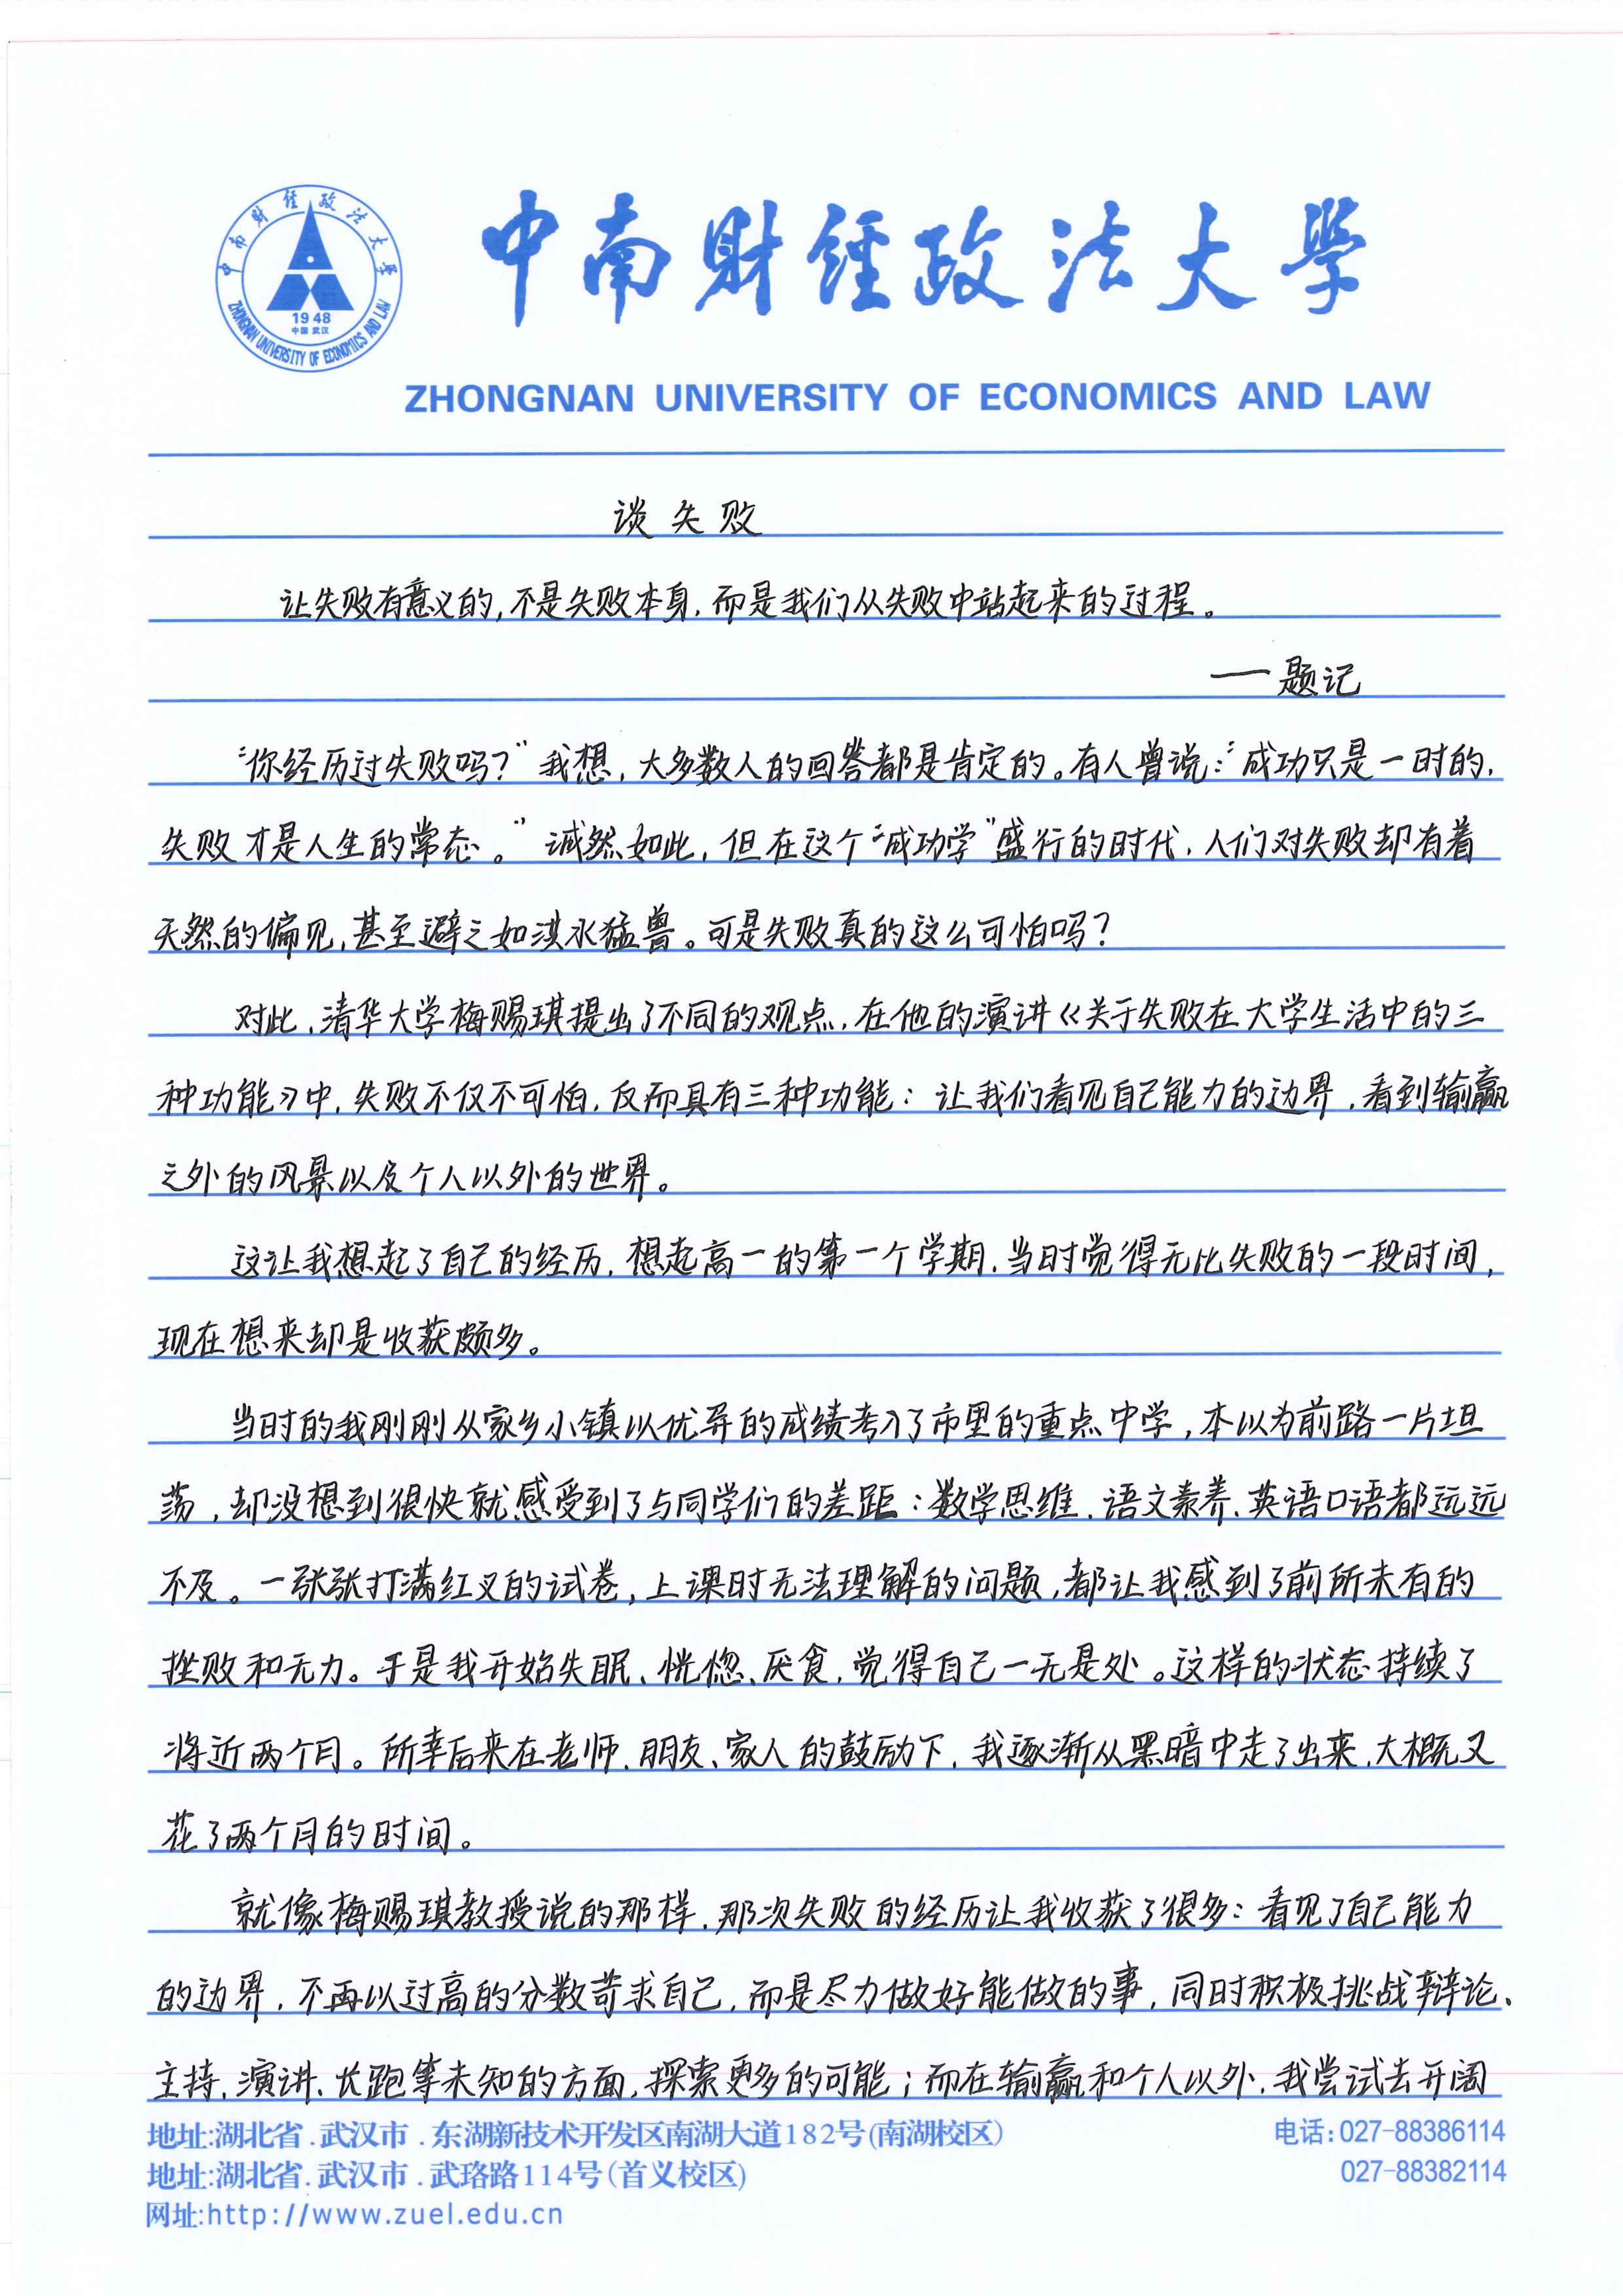 中南财经政法大学
1948
中国 武汉
ZHONGNAN UNIVERSITY OF ECONOMICS AND LAW
中南财经政法大學
ZHONGNAN UNIVERSITY OF ECONOMICS AND LAW
谈失败
让失败有意义的,不是失败本身,而是我们从失败中站起来的过程。
——题记
“你经历过失败吗?”我想,大多数人的回答都是肯定的。有人曾说:“成功只是一时的,
失败才是人生的常态。”诚然如此,但在这个“成功学”盛行的时代,人们对失败却有着
天然的偏见,甚至避之如洪水猛兽。可是失败真的这么可怕吗?
对此,清华大学梅赐琪提出了不同的观点,在他的演讲《关于失败在大学生活中的三
种功能》中,失败不仅不可怕,反而具有三种功能:让我们看见自己能力的边界,看到输赢
之外的风景以及个人以外的世界。
这让我想起了自己的经历,想起高一的第一个学期,当时觉得无比失败的一段时间,
现在想来却是收获颇多。
当时的我刚刚从家乡小镇以优异的成绩考入了市里的重点中学,本以为前路一片坦
荡,却没想到很快就感受到了与同学们的差距:数学思维、语文素养、英语口语都远远
不及。一张张打满红叉的试卷,上课时无法理解的问题,都让我感到了前所未有的
挫败和无力。于是我开始失眠、恍惚、厌食,觉得自己一无是处。这样的状态持续了
将近两个月。所幸后来在老师、朋友、家人的鼓励下,我逐渐从黑暗中走了出来,大概又
花了两个月的时间。
就像梅赐琪教授说的那样,那次失败的经历让我收获了很多:看见了自己能力
的边界,不再以过高的分数苛求自己,而是尽力做好能做的事,同时积极挑战辩论、
主持、演讲、长跑等未知的方面,探索更多的可能;而在输赢和个人以外,我尝试去开阔
地址:湖北省.武汉市.东湖新技术开发区南湖大道182号(南湖校区) 电话:027-88386114
地址:湖北省.武汉市.武珞路114号(首义校区) 027-88382114
网址:http://www.zuel.edu.cn